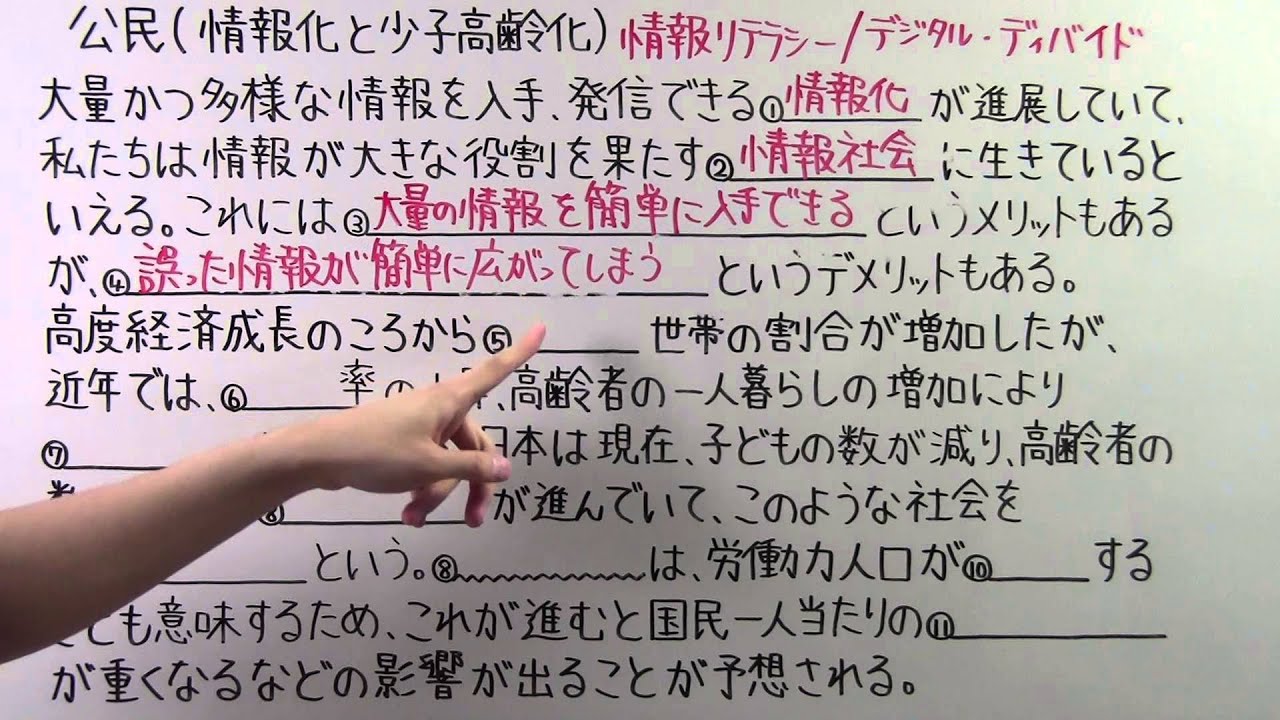 公民(情報化と少子高齢化) 情報リテラシー/デジタル・ディバイド
大量かつ多様な情報を入手、発信できる①情報化が進展していて、
私たちは情報が大きな役割を果たす②情報社会に生きていると
いえる。これには③大量の情報を簡単に入手できるというメリットもある
が、④誤った情報が簡単に広がってしまうというデメリットもある。
高度経済成長のころから⑤____世帯の割合が増加したが、
近年では、⑥____率の、高齢者の一人暮らしの増加により
⑦____日本は現在、子どもの数が減り、高齢者の
⑧____が進んでいて、このような社会を
____という。⑧____は、労働力人口が⑩____する
も意味するため、これが進むと国民一人当たりの⑪____
が重くなるなどの影響が出ることが予想される。